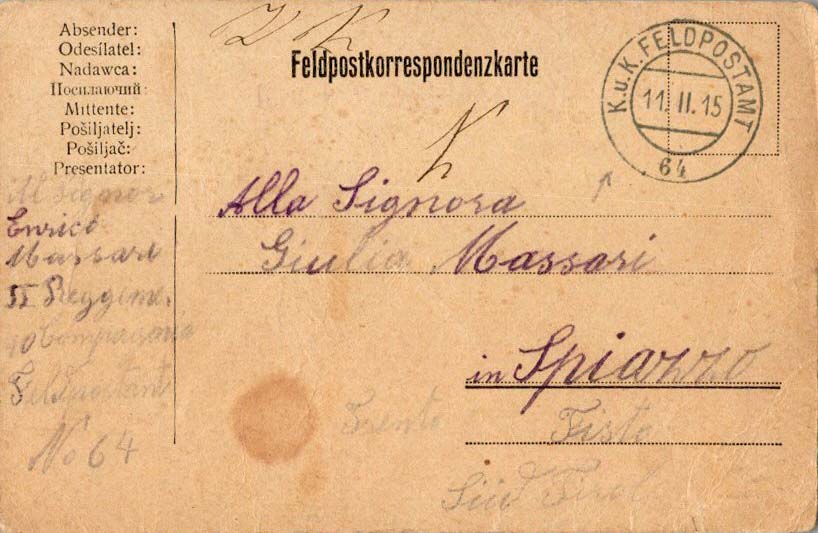 Absender:
Odesílatel:
Nadawca:
Посилаючий:
Mittente:
Pošiljatelj:
Pošiljač:
Presentator:
Feldpostkorrespondenzkarte
K.u.K. FELDPOSTAMT
11. II. 15
64
Al signor
Enrico
Massari
II Reggime.
10 Compagnia
Feldpostamt
No 64
Alla Signora
Giulia Massari
in Spiazzo
Trento Fisto
Süd Tirol